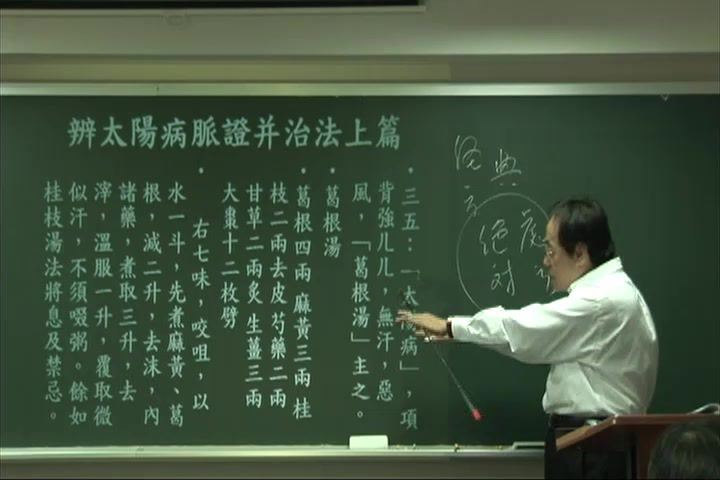 辨太陽病脈證并治法上篇
・三五：「太病」，項
背強儿儿，無汗，惡
風，「葛根湯」主之。
・葛根湯
葛根四兩 麻黃三兩 桂
枝二兩去皮芍藥二兩
甘草二兩炙 生薑三兩
大棗十二枚劈
・右七味，咬咀，以
水一斗，先煮麻黃、葛
根，減二升，去沫，內
諸藥，煮取三升，去
滓，溫服一升，覆取微
似汗，不須啜粥。餘如
桂枝湯法將息及禁忌。
經典
絕對